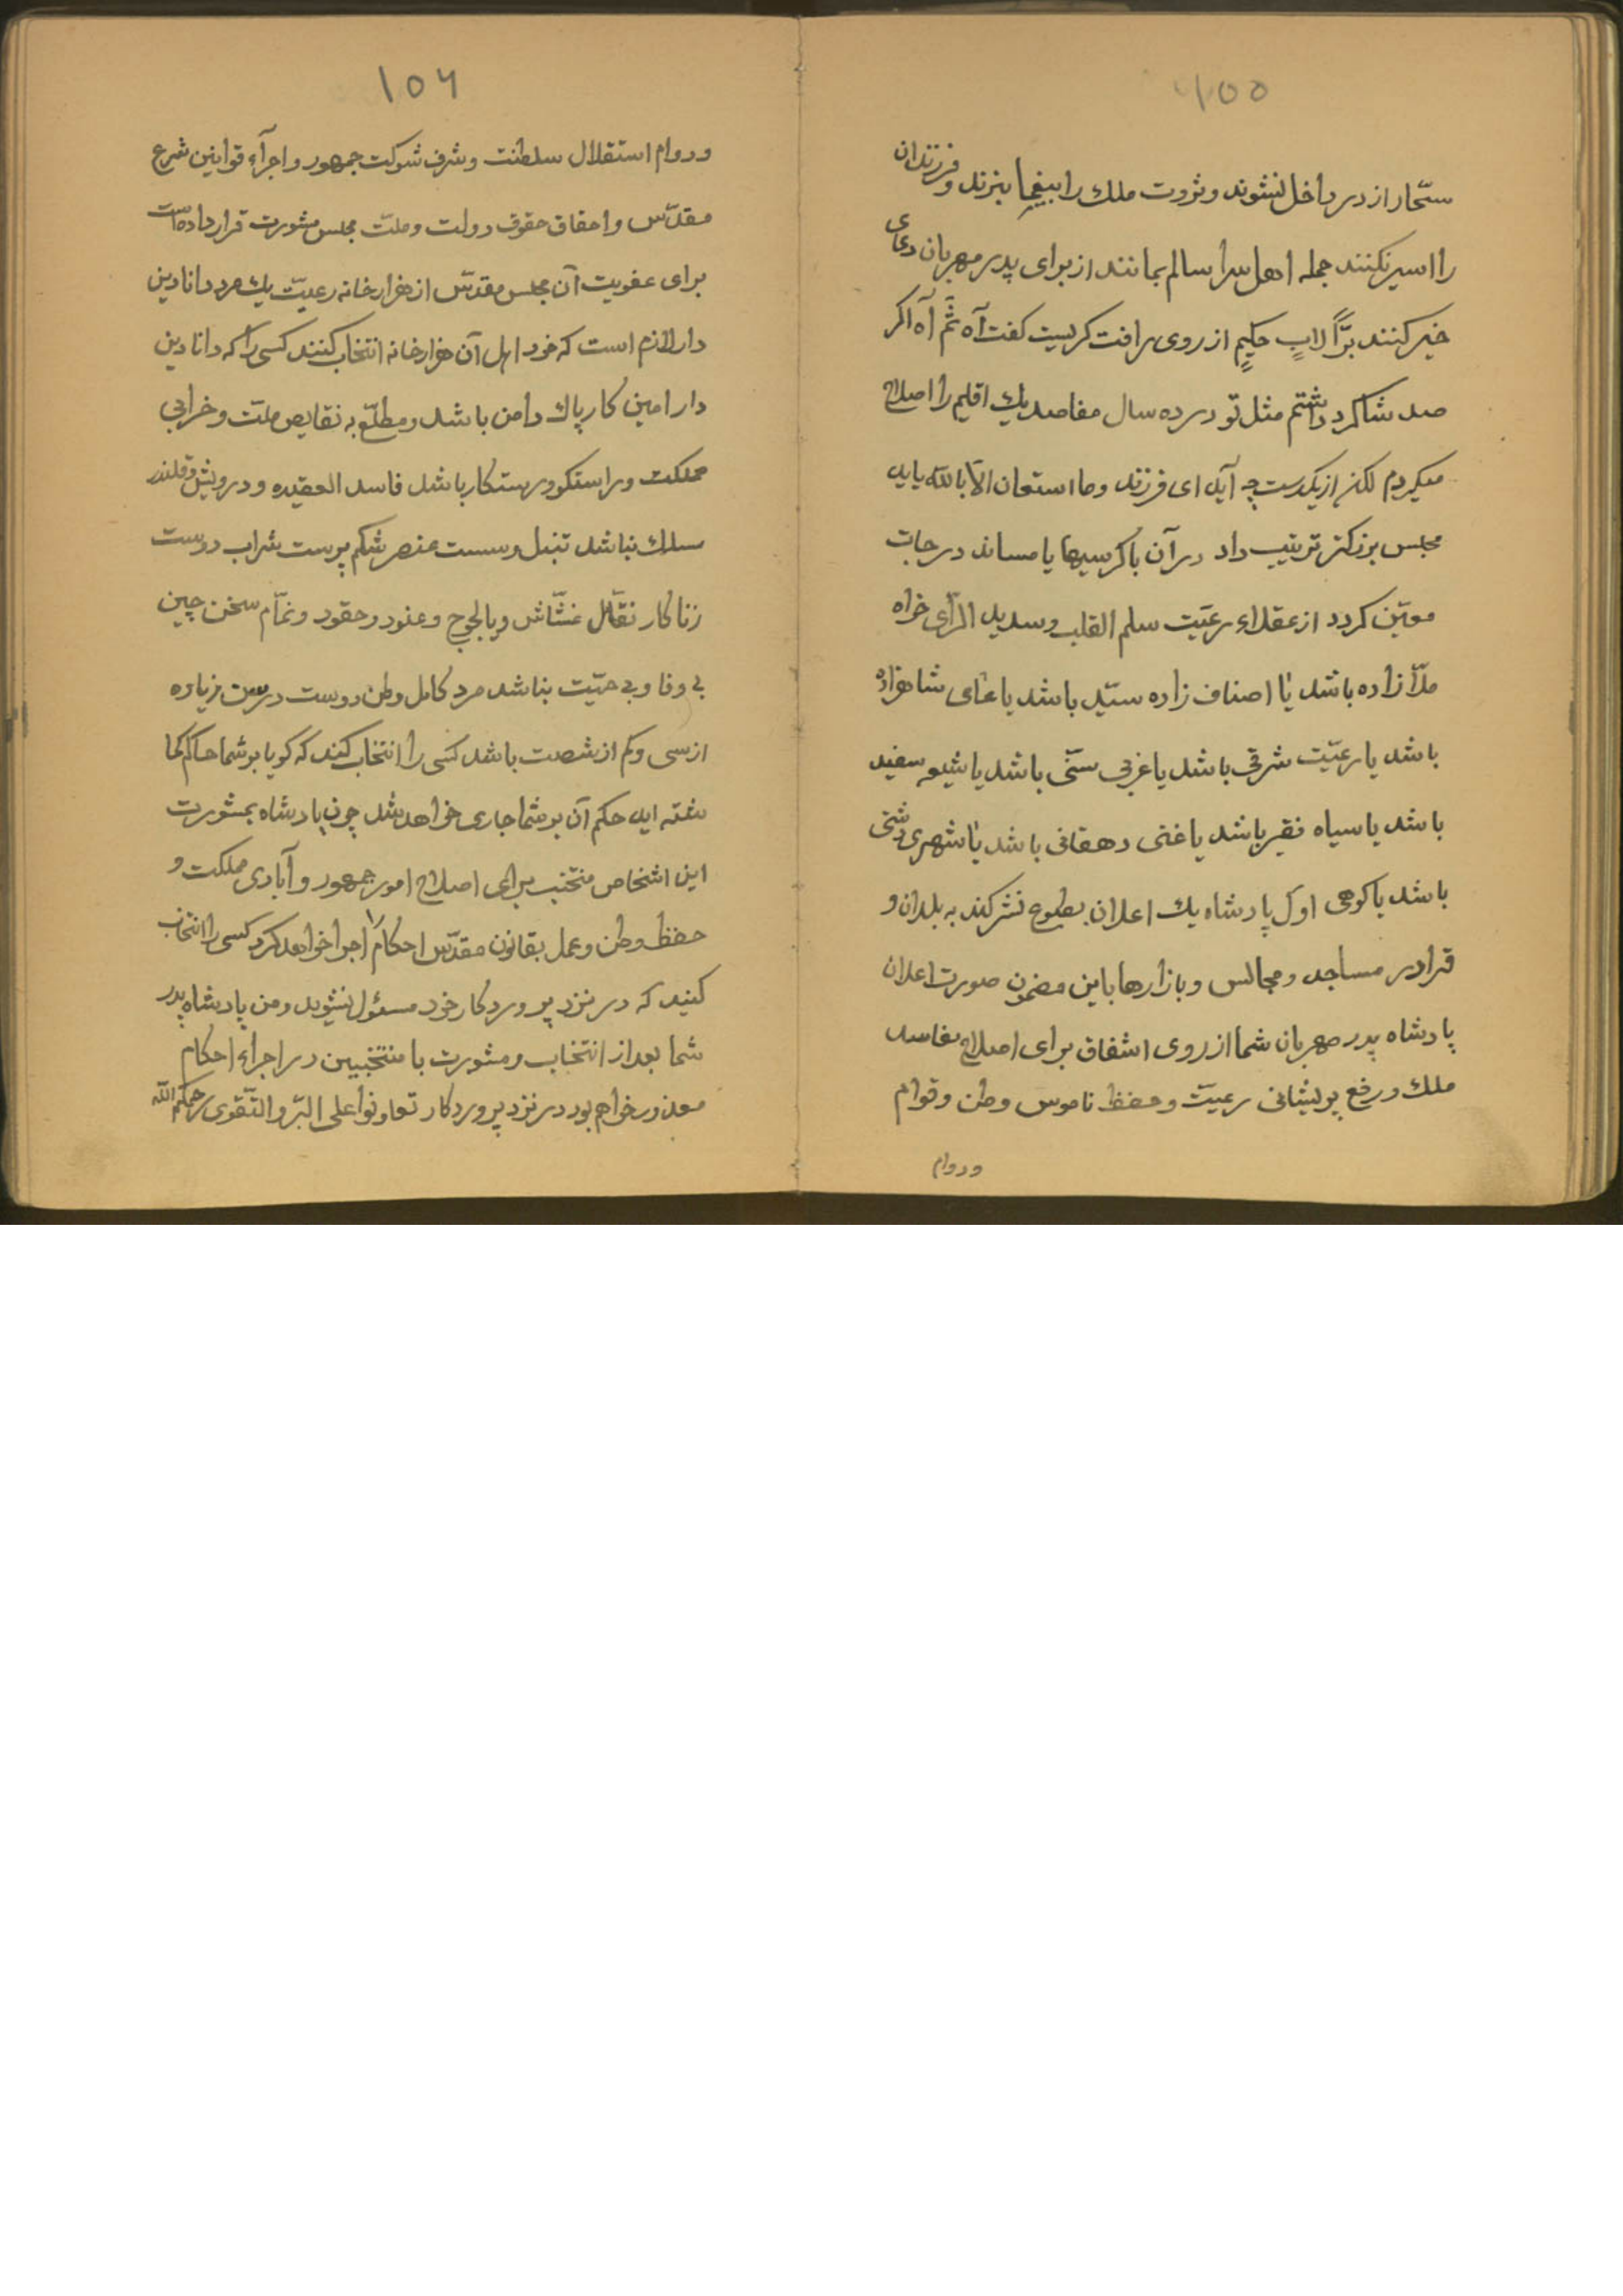 ۱۵۵
سحّار از در داخل نشوند و ثروت ملك را بیغما نبرند و فرزندان
را اسیر نكنند جمله اهل سرا سالم بمانند از برای پدر مهربان دعای
خیر كنند برّاً لابٍ حكیمٍ از روی رافت كریست كفت آه ثمّ آه اكر
صد شاكرد داشتم مثل تو در ده سال مفاصد یك اقلیم را اصلاح
میكردم لكن از یكدست چه آید ای فرزند وما استعان الّا بالله باید
مجلس بزركتر ترتیب داد در آن با كرسیها یا مساند درجات
معیّن كردد از عقلاء رعیّت سلم القلب و سدید الرّای خواه
ملّا زاده باشد یا اصناف زاده سیّد باشد یا عامی شاهزاده
باشد یا رعیّت شرقی باشد یا غربی سنّی باشد یا شیعه سفید
باشد یا سیاه فقیر باشد یا غنی دهقانی باشد یا شهری دشتی
باشد یا كوهی اوّل پادشاه یك اعلان بطلوع نشر كند به بلدان و
قرا در مساجد و مجالس و بازارها باین مضمون صورت اعلان
پادشاه پدر مهربان شما از روی اشفاق برای اصلاح مفاسد
ملك و رفع پریشانی رعیّت و حفظ ناموس وطن و قوام
ودوام
۱۵۶
ودوام استقلال سلطنت و شرف شوكت جمهور و اجرآء قوانین شرع
مقدّس و احقاق حقوق دولت و ملّت مجلس مشورت قرار داده است
برای عضویت آن مجلس مقدّس از هزار خانه رعیّت یك مرد دانا دین
دار لازم است كه خود اهل آن هزار خانه انتخاب كنند كسی را كه دانا دین
دار امین كار پاك دامن باشد و مطلّع به نقایص ملّت و خرابی
مملكت و راستكو درستكار باشد فاسد العقیده و درویش و قلندر
مسلك نباشد تنبل و سست عنصر شكم پرست شراب دوست
زنا كار نقّال غشّاش و یا لجوج و عنود و حقود و غمّام سخن چین
بی وفا و بی حمیّت نباشد مرد كامل وطن دوست در سن زیاده
از سی و كم از شصت باشد كسی را انتخاب كنند كه كویا بر شما حاكم كما
شته اید حكم آن بر شما جاری خواهد شد چون پادشاه بمشورت
این اشخاص منتخب برای اصلاح امور جمهور و آبادی مملكت و
حفظ وطن و عمل بقانون مقدّس احكام را اجرا خواهد كرد كسی را انتخاب
كنید كه در نزد پروردكار خود مسئول نشوید و من پادشاه پدر
شما بعد از انتخاب و مشورت با منتخبین در اجراء احكام
معذور خواهم بود در نزد پروردكار تعاونوا علی البّر والتّقوی رحمكم الله